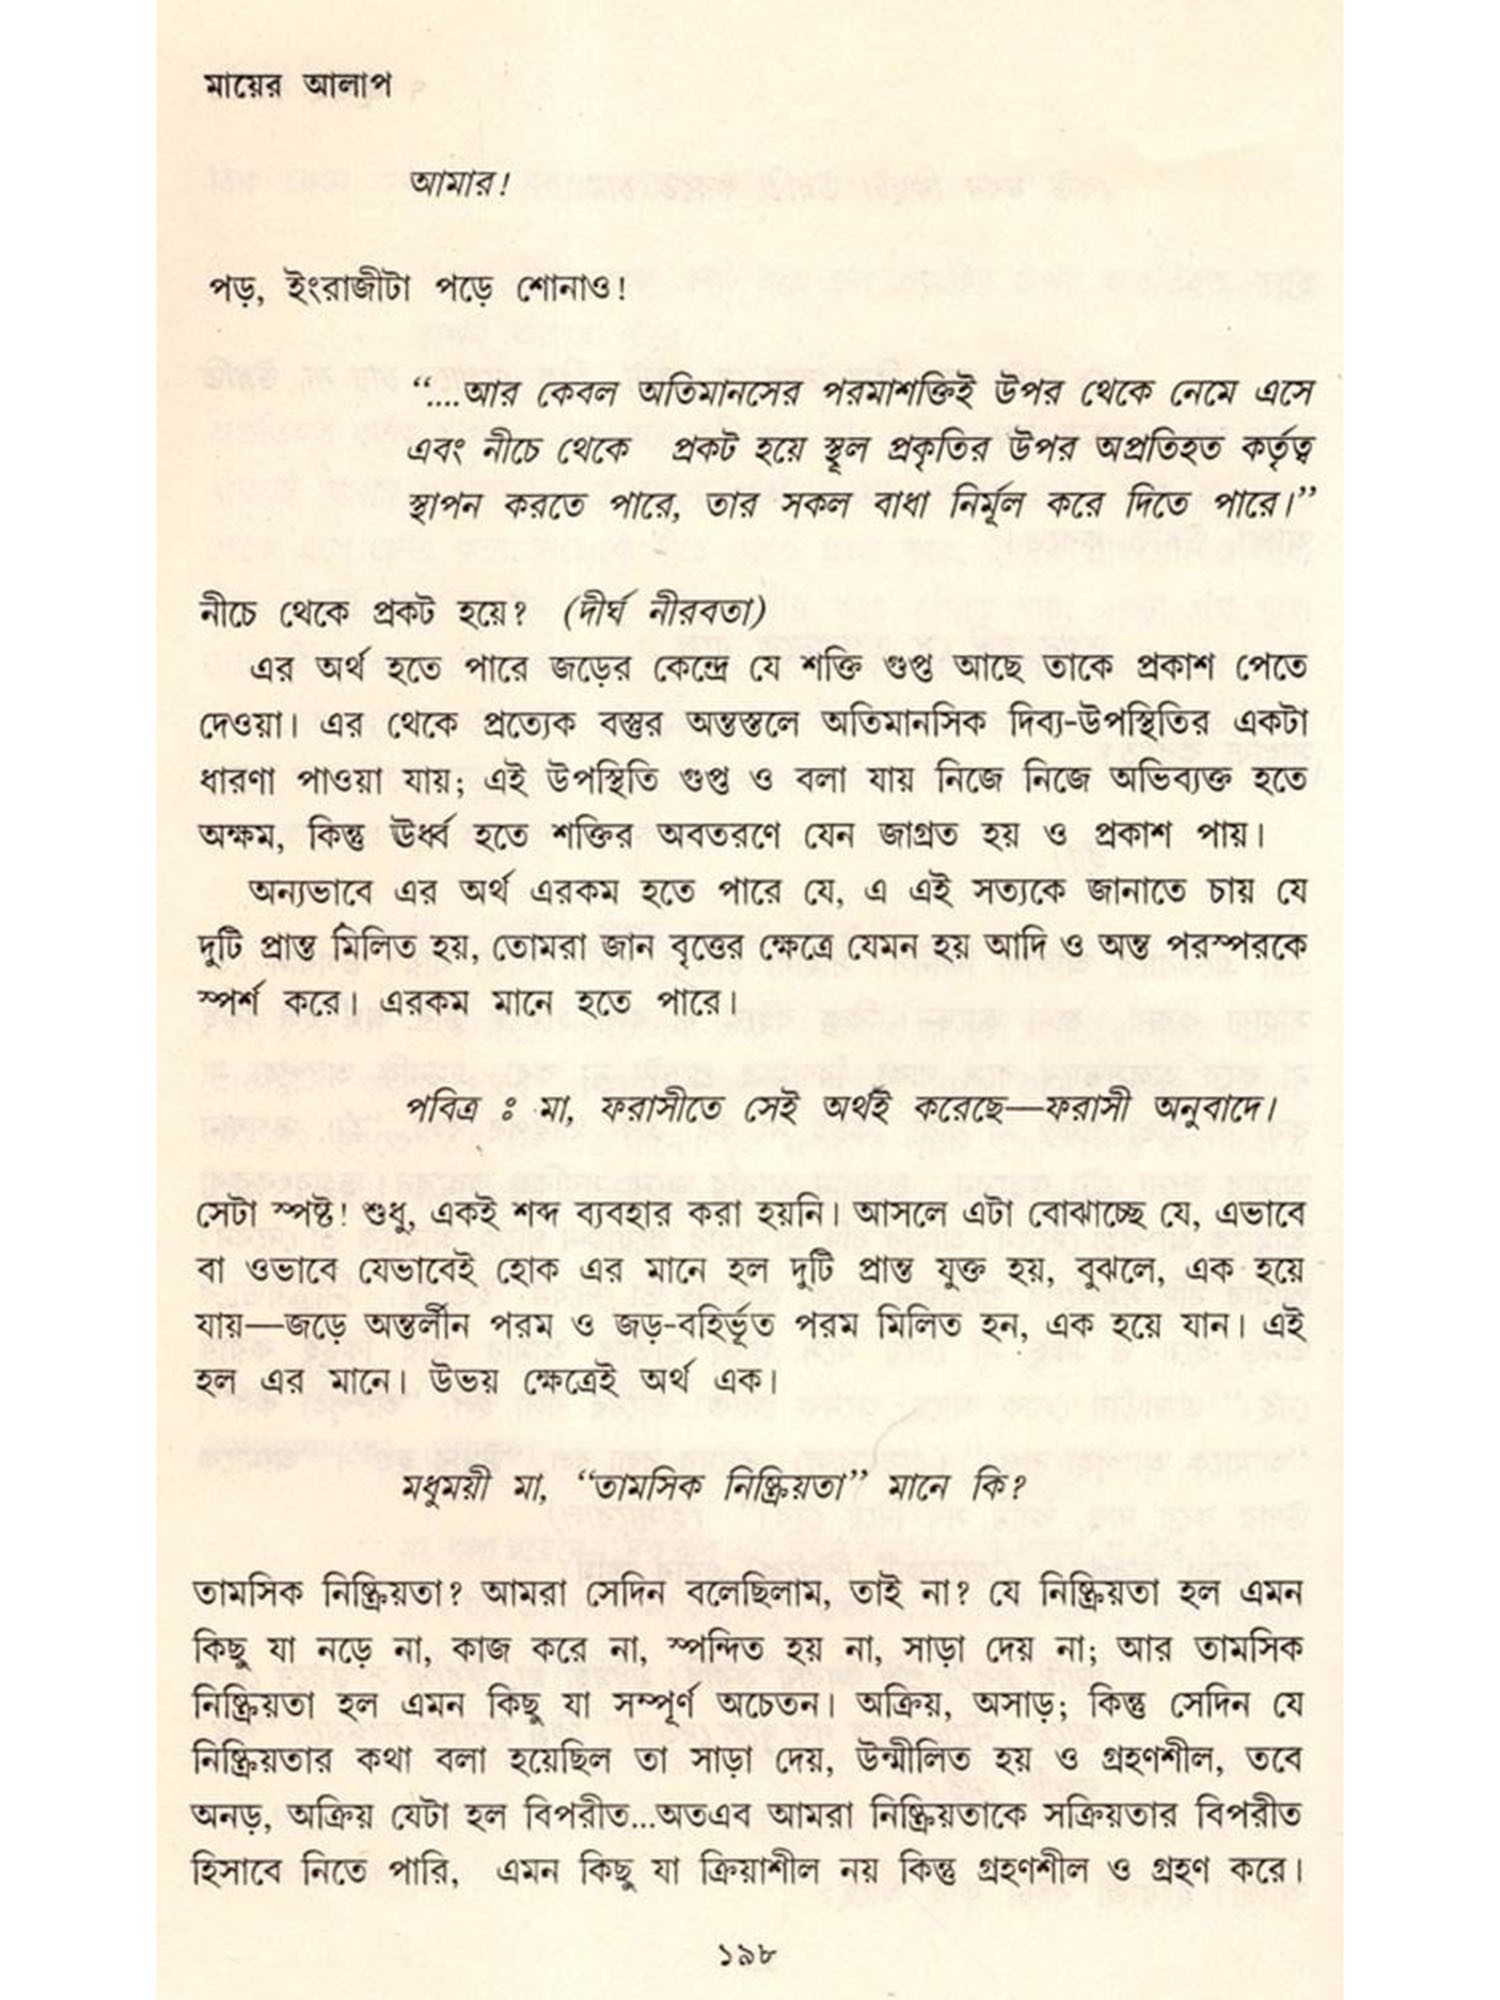 মায়ের আলাপ
আমার!
পড়, ইংরাজীটা পড়ে শোনাও!
“....আর কেবল অতিমানসের পরমাশক্তিই উপর থেকে নেমে এসে
এবং নীচে থেকে প্রকট হয়ে স্থূল প্রকৃতির উপর অপ্রতিহত কর্তৃত্ব
স্থাপন করতে পারে, তার সকল বাধা নির্মূল করে দিতে পারে।”
নীচে থেকে প্রকট হয়ে? (দীর্ঘ নীরবতা)
এর অর্থ হতে পারে জড়ের কেন্দ্রে যে শক্তি গুপ্ত আছে তাকে প্রকাশ পেতে
দেওয়া। এর থেকে প্রত্যেক বস্তুর অন্তস্তলে অতিমানসিক দিব্য-উপস্থিতির একটা
ধারণা পাওয়া যায়; এই উপস্থিতি গুপ্ত ও বলা যায় নিজে নিজে অভিব্যক্ত হতে
অক্ষম, কিন্তু ঊর্ধ্ব হতে শক্তির অবতরণে যেন জাগ্রত হয় ও প্রকাশ পায়।
অন্যভাবে এর অর্থ এরকম হতে পারে যে, এ এই সত্যকে জানাতে চায় যে
দুটি প্রান্ত মিলিত হয়, তোমরা জান বৃত্তের ক্ষেত্রে যেমন হয় আদি ও অন্ত পরস্পরকে
স্পর্শ করে। এরকম মানে হতে পারে।
পবিত্র ঃ মা, ফরাসীতে সেই অর্থই করেছে—ফরাসী অনুবাদে।
সেটা স্পষ্ট! শুধু, একই শব্দ ব্যবহার করা হয়নি। আসলে এটা বোঝাচ্ছে যে, এভাবে
বা ওভাবে যেভাবেই হোক এর মানে হল দুটি প্রান্ত যুক্ত হয়, বুঝলে, এক হয়ে
যায়—জড়ে অন্তর্লীন পরম ও জড়-বহির্ভূত পরম মিলিত হন, এক হয়ে যান। এই
হল এর মানে। উভয় ক্ষেত্রেই অর্থ এক।
মধুময়ী মা, “তামসিক নিষ্ক্রিয়তা” মানে কি?
তামসিক নিষ্ক্রিয়তা? আমরা সেদিন বলেছিলাম, তাই না? যে নিষ্ক্রিয়তা হল এমন
কিছু যা নড়ে না, কাজ করে না, স্পন্দিত হয় না, সাড়া দেয় না; আর তামসিক
নিষ্ক্রিয়তা হল এমন কিছু যা সম্পূর্ণ অচেতন। অক্রিয়, অসাড়; কিন্তু সেদিন যে
নিষ্ক্রিয়তার কথা বলা হয়েছিল তা সাড়া দেয়, উন্মীলিত হয় ও গ্রহণশীল, তবে
অনড়, অক্রিয় যেটা হল বিপরীত...অতএব আমরা নিষ্ক্রিয়তাকে সক্রিয়তার বিপরীত
হিসাবে নিতে পারি, এমন কিছু যা ক্রিয়াশীল নয় কিন্তু গ্রহণশীল ও গ্রহণ করে।
১৯৮